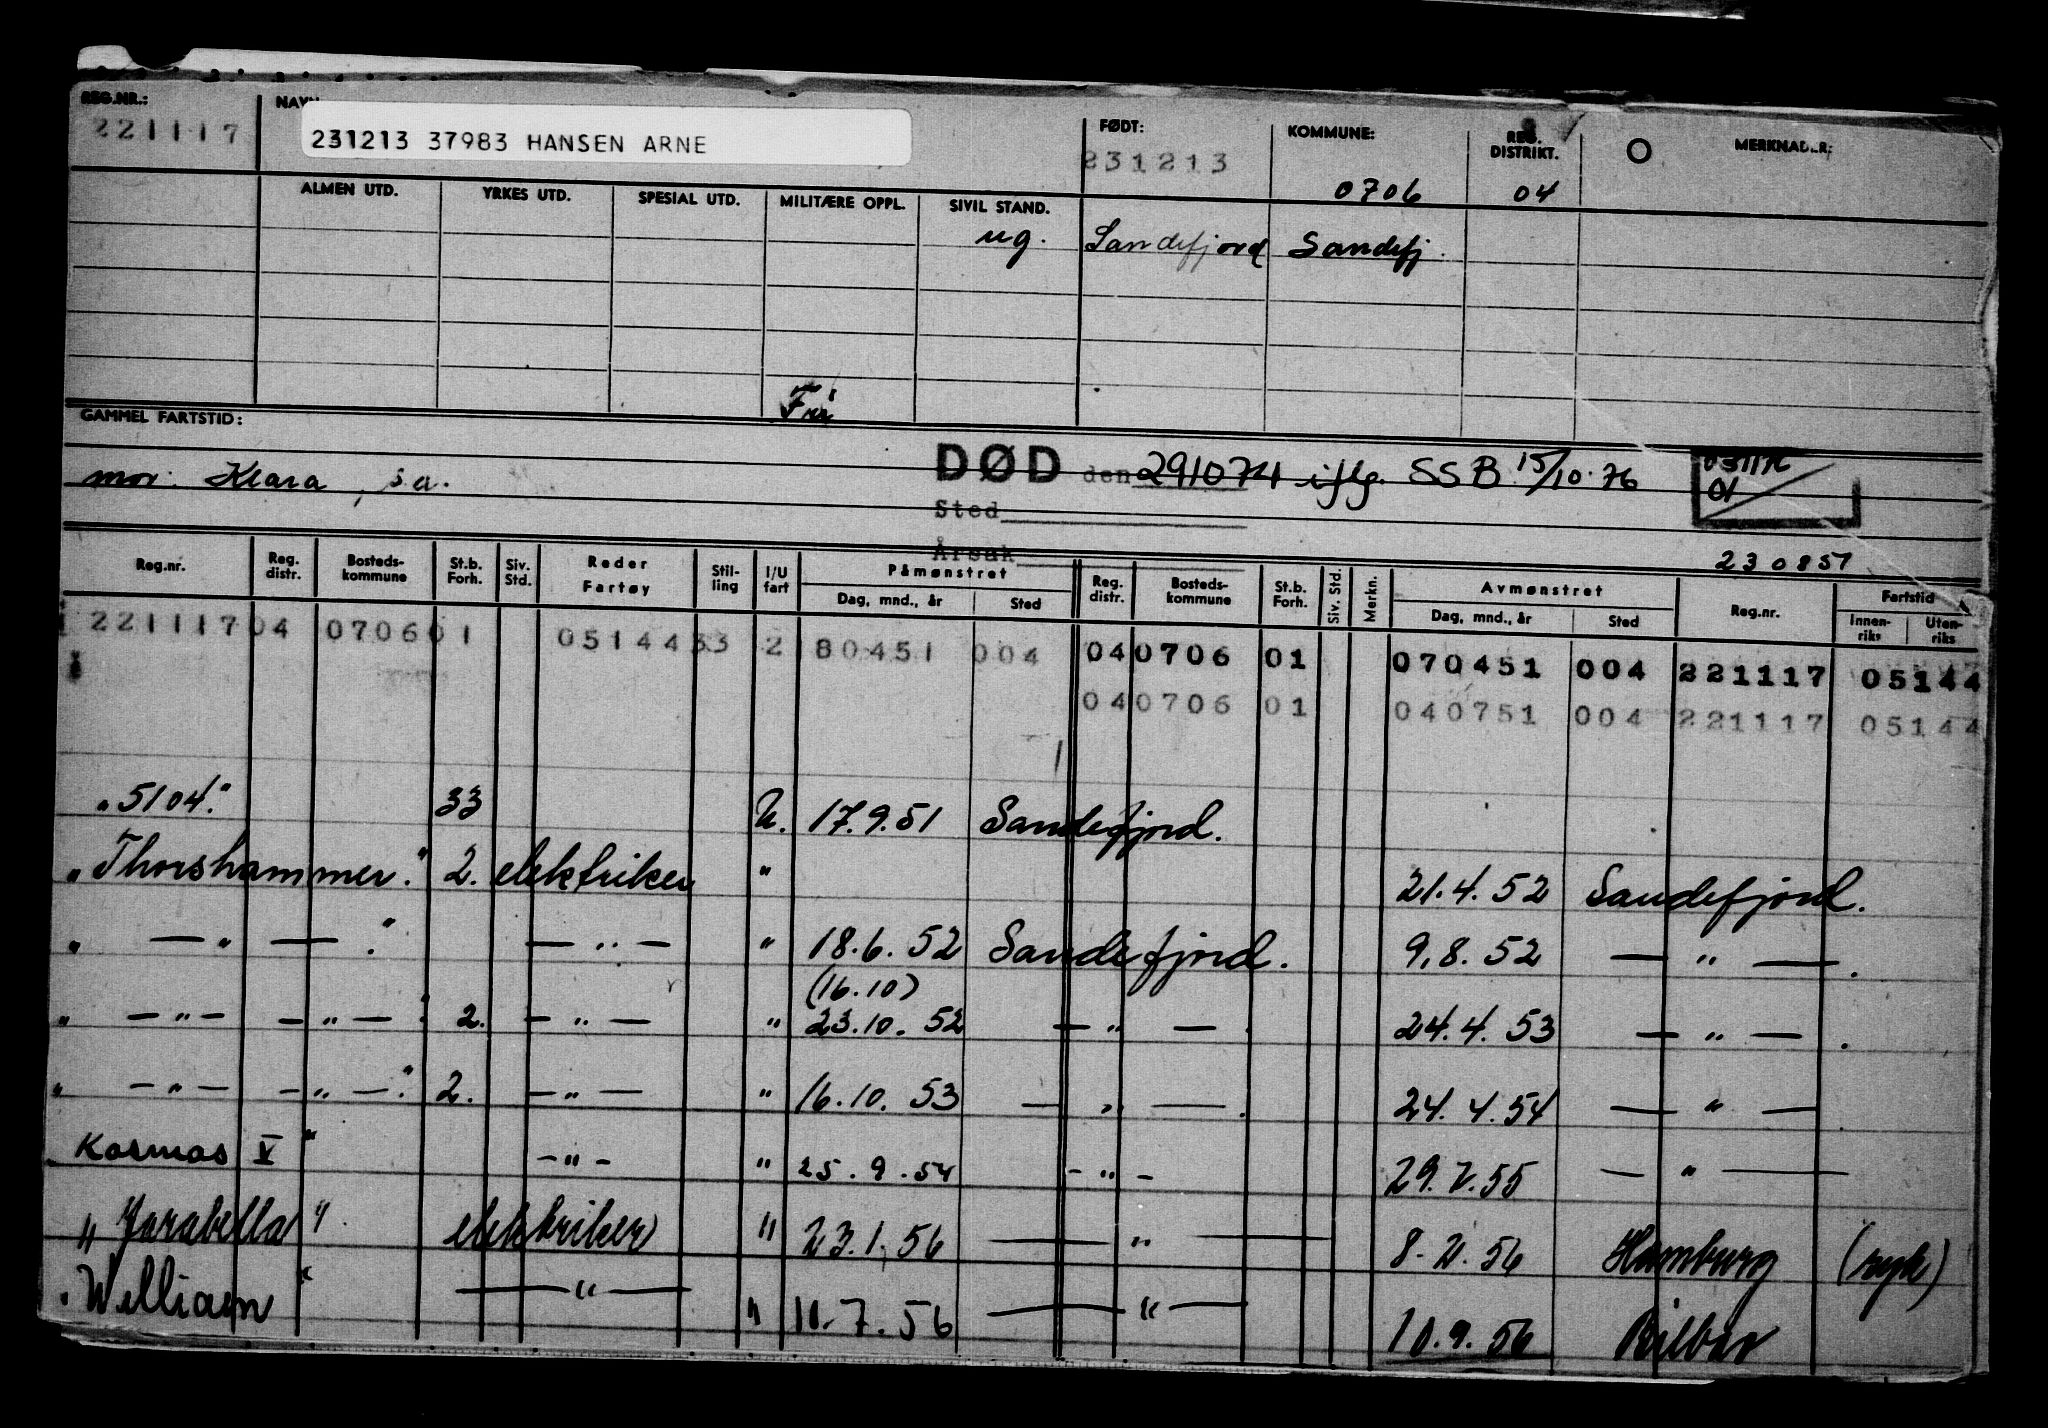 REG.NR.: NAVN FØDT: KOMMUNE: REG. DISTRIKT. MERKNADER:
221117 231213 37983 HANSEN ARNE 231213 0706 04
ALMEN UTD. YRKES UTD. SPESIAL UTD. MILITÆRE OPPL. SIVIL STAND.
ug. Sandefjord Sandefj.
GAMMEL FARTSTID:
mor: Klara, s.a. DØD den 291074 iflg. SSB 15/10.76 031176
01
Sted
Årsak 230857
Reg.nr. Reg. distr. Bosteds-kommune St.b. Forh. Siv. Std. Reder Fartøy Stil-ling I/U fart Påmønstret Reg. distr. Bosteds-kommune St.b. Forh. Siv. Std. Merkn. Avmønstret Reg.nr. Fartstid
Dag, mnd., år Sted Dag, mnd., år Sted Innen-riks Uten-riks
221117 04 0706 01 05144 33 2 80451 004 04 0706 01 070451 004 221117 05144
04 0706 01 040751 004 221117 05144
"5104." 33 U. 17.9.51 Sandefjord.
"Thorshammer." 2. elektriker " 21.4.52 Sandefjord.
" — " — ." — " — " 18.6.52 Sandefjord. 9.8.52 — " — .
(16.10)
" — " — — " — ." 2. — " — " 23.10.52 — " — . 24.4.53 — " — .
" — " — — " — ." 2. — " — " 16.10.53 — " — . 24.4.54 — " —
Kosmos V" — " — " 25.9.54 — " — 29.7.55 — " —
"Jarabella" elektriker " 23.1.56 — " — 8.2.56 Hamburg (syk)
"William" — " — " 11.7.56 — " — 10.9.56 Bilbao